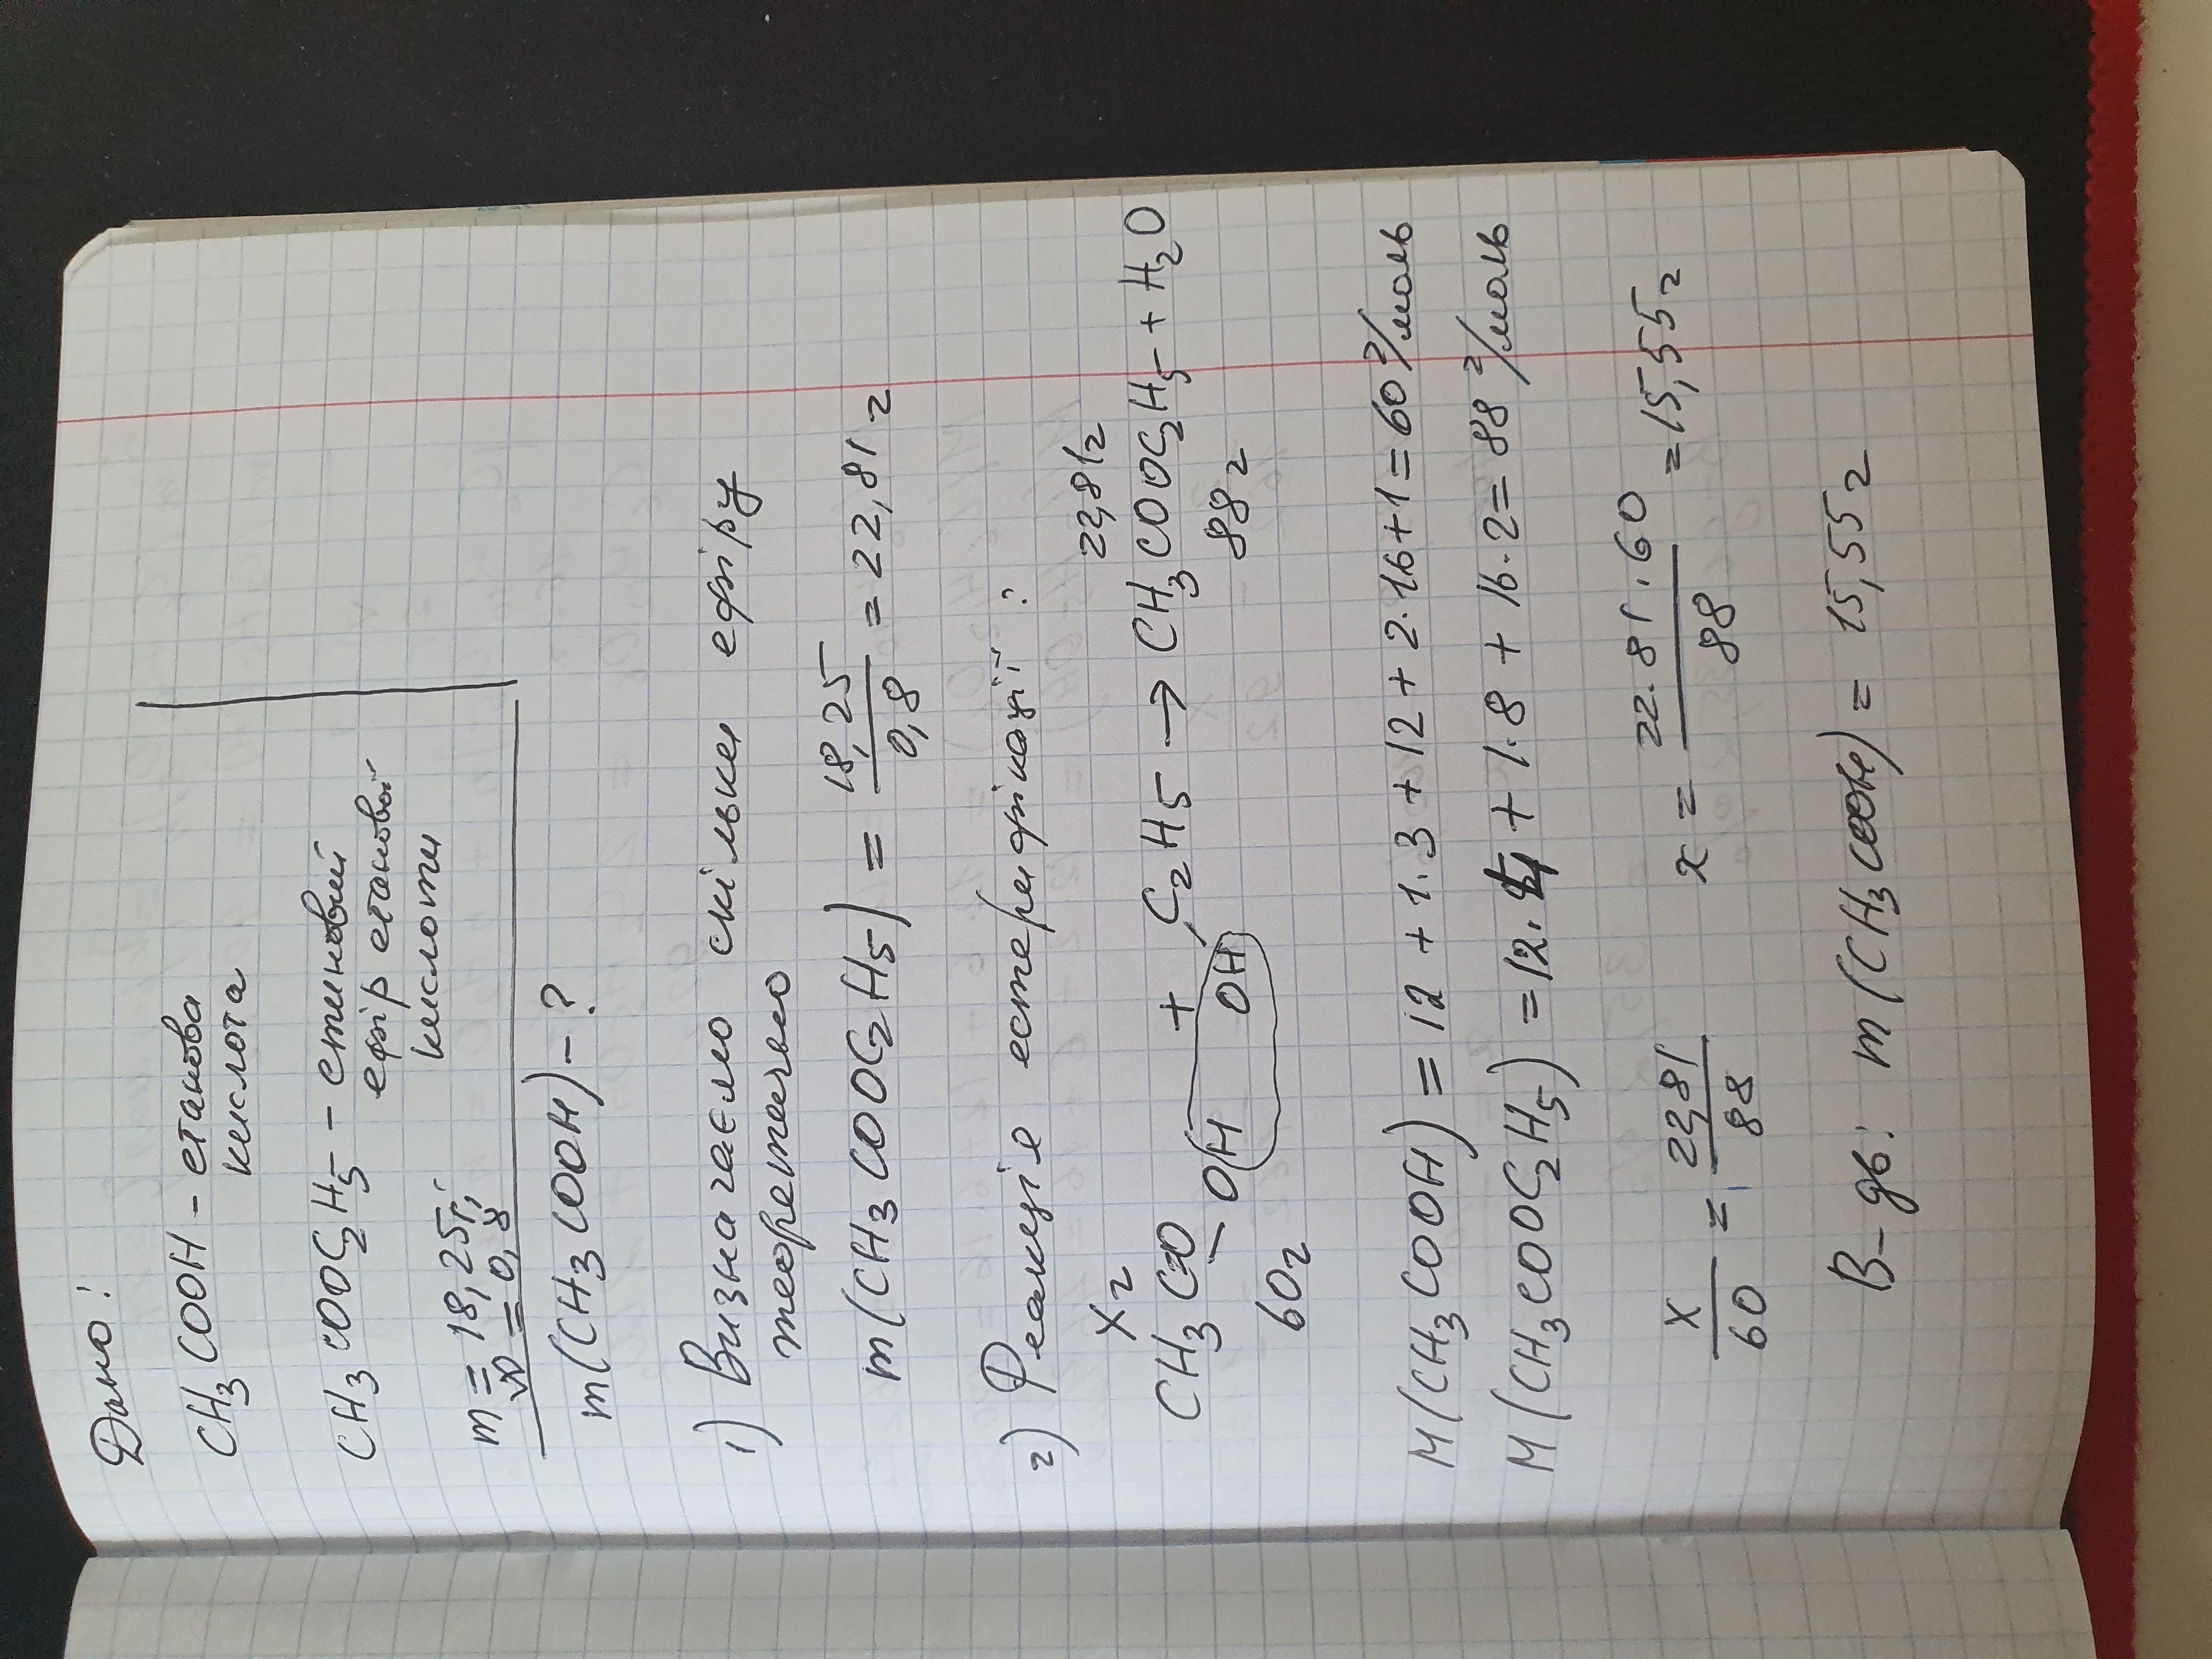 Дано:
CH3COOH - етанова
кислота
CH3COOC2H5 - етиловий
ефір етанової
кислоти
m = 18,25г;
= 0,8
m(CH3COOH) - ?
1) Визначаємо скільки ефіру
теоретично
m(CH3COOC2H5) = 18,25/0,8 = 22,81 г
2) Реакція естерифікації:
x г 22,81г
CH3C=O - OH + C2H5 OH → CH3COOC2H5 + H2O
60г 88 г
M(CH3COOH) = 12 + 1·3 + 12 + 2·16 + 1 = 60 г/моль
M(CH3COOC2H5) = 12·4 + 1·8 + 16·2 = 88 г/моль
x/60 = 22,81/88 x = 22.81·60/88 = 15,55 г
В-дь: m(CH3COOH) = 15,55 г